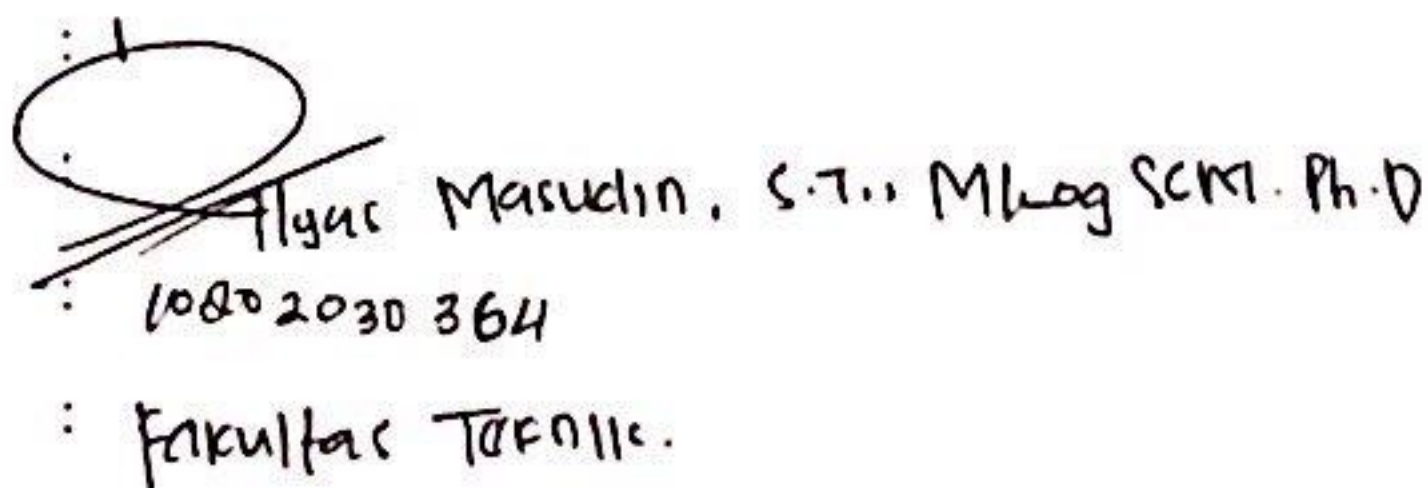 :
:
Ilyas Masudin, S.T., MLog SCM. Ph.D
: 10802030364
: Fakultas Teknik.